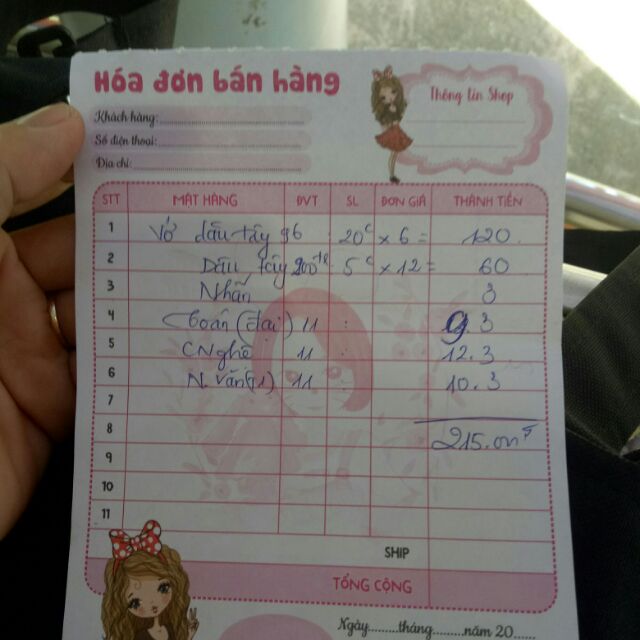 Hóa đơn bán hàng
Thông tin Shop
Khách hàng:
Số điện thoại:
Địa chỉ:
STT MẶT HÀNG ĐVT SL ĐƠN GIÁ THÀNH TIỀN
1 Vở dâu tây 96 20c x 6 = 120.
2 Dâu tây 200 5c x 12 = 60
3 Nhãn 3
4 (Đại) 11 9 3
5 CNghệ 11 12.3
6 N.Văn(1) 11 10.3
7
8 215.
9
10
11
SHIP
TỔNG CỘNG
Ngày........tháng........năm 20.....